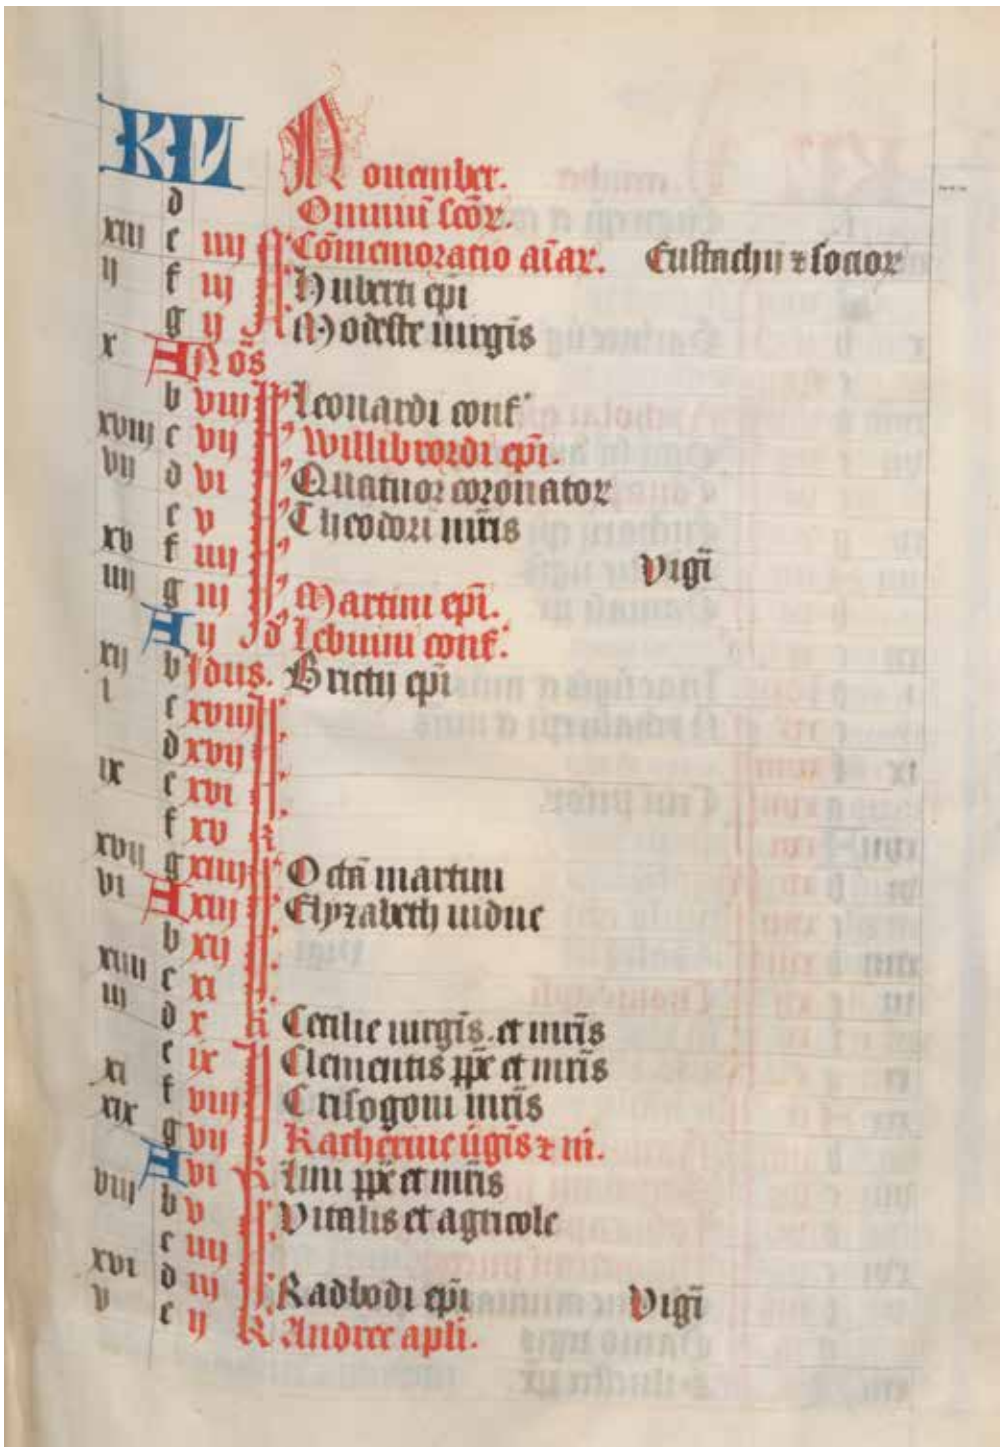 KL Nouember.
d Omniū scōr.
xiii e iiij Cōmemoratio aīar. Eustachii ⁊ socior
ij f iij Huberti ep̄i
g ij Modeste uirgīs
x A Nōs
b viij Leonardi conf'
xviij c vij Willibrordi ep̄i.
vij d vi Quatuor coronator
e v Theodori mr̄is
xv f iiij Vigī
iiij g iij Martini ep̄i.
A ij d' Lebuini conf'
xij b Idus. Brictij ep̄i
i c xviij
d xvij
ix e xvi
f xv k
xvij g xiiij Octā martini
vi A xiij Elyzabeth uidue
b xij
xiiij c xi
iij d x k Cecilie uirgīs et mr̄is
e ix Clementis pp̄e et mr̄is
xi f viij Crisogoni mr̄is
xix g vij Katherine ūgīs ⁊ m̄.
A vi k Lini pp̄e et mr̄is
viij b v Vitalis et agricole
c iiij
xvi d iij Radbodi ep̄i Vigī
v e ij k Andree apl̄i.